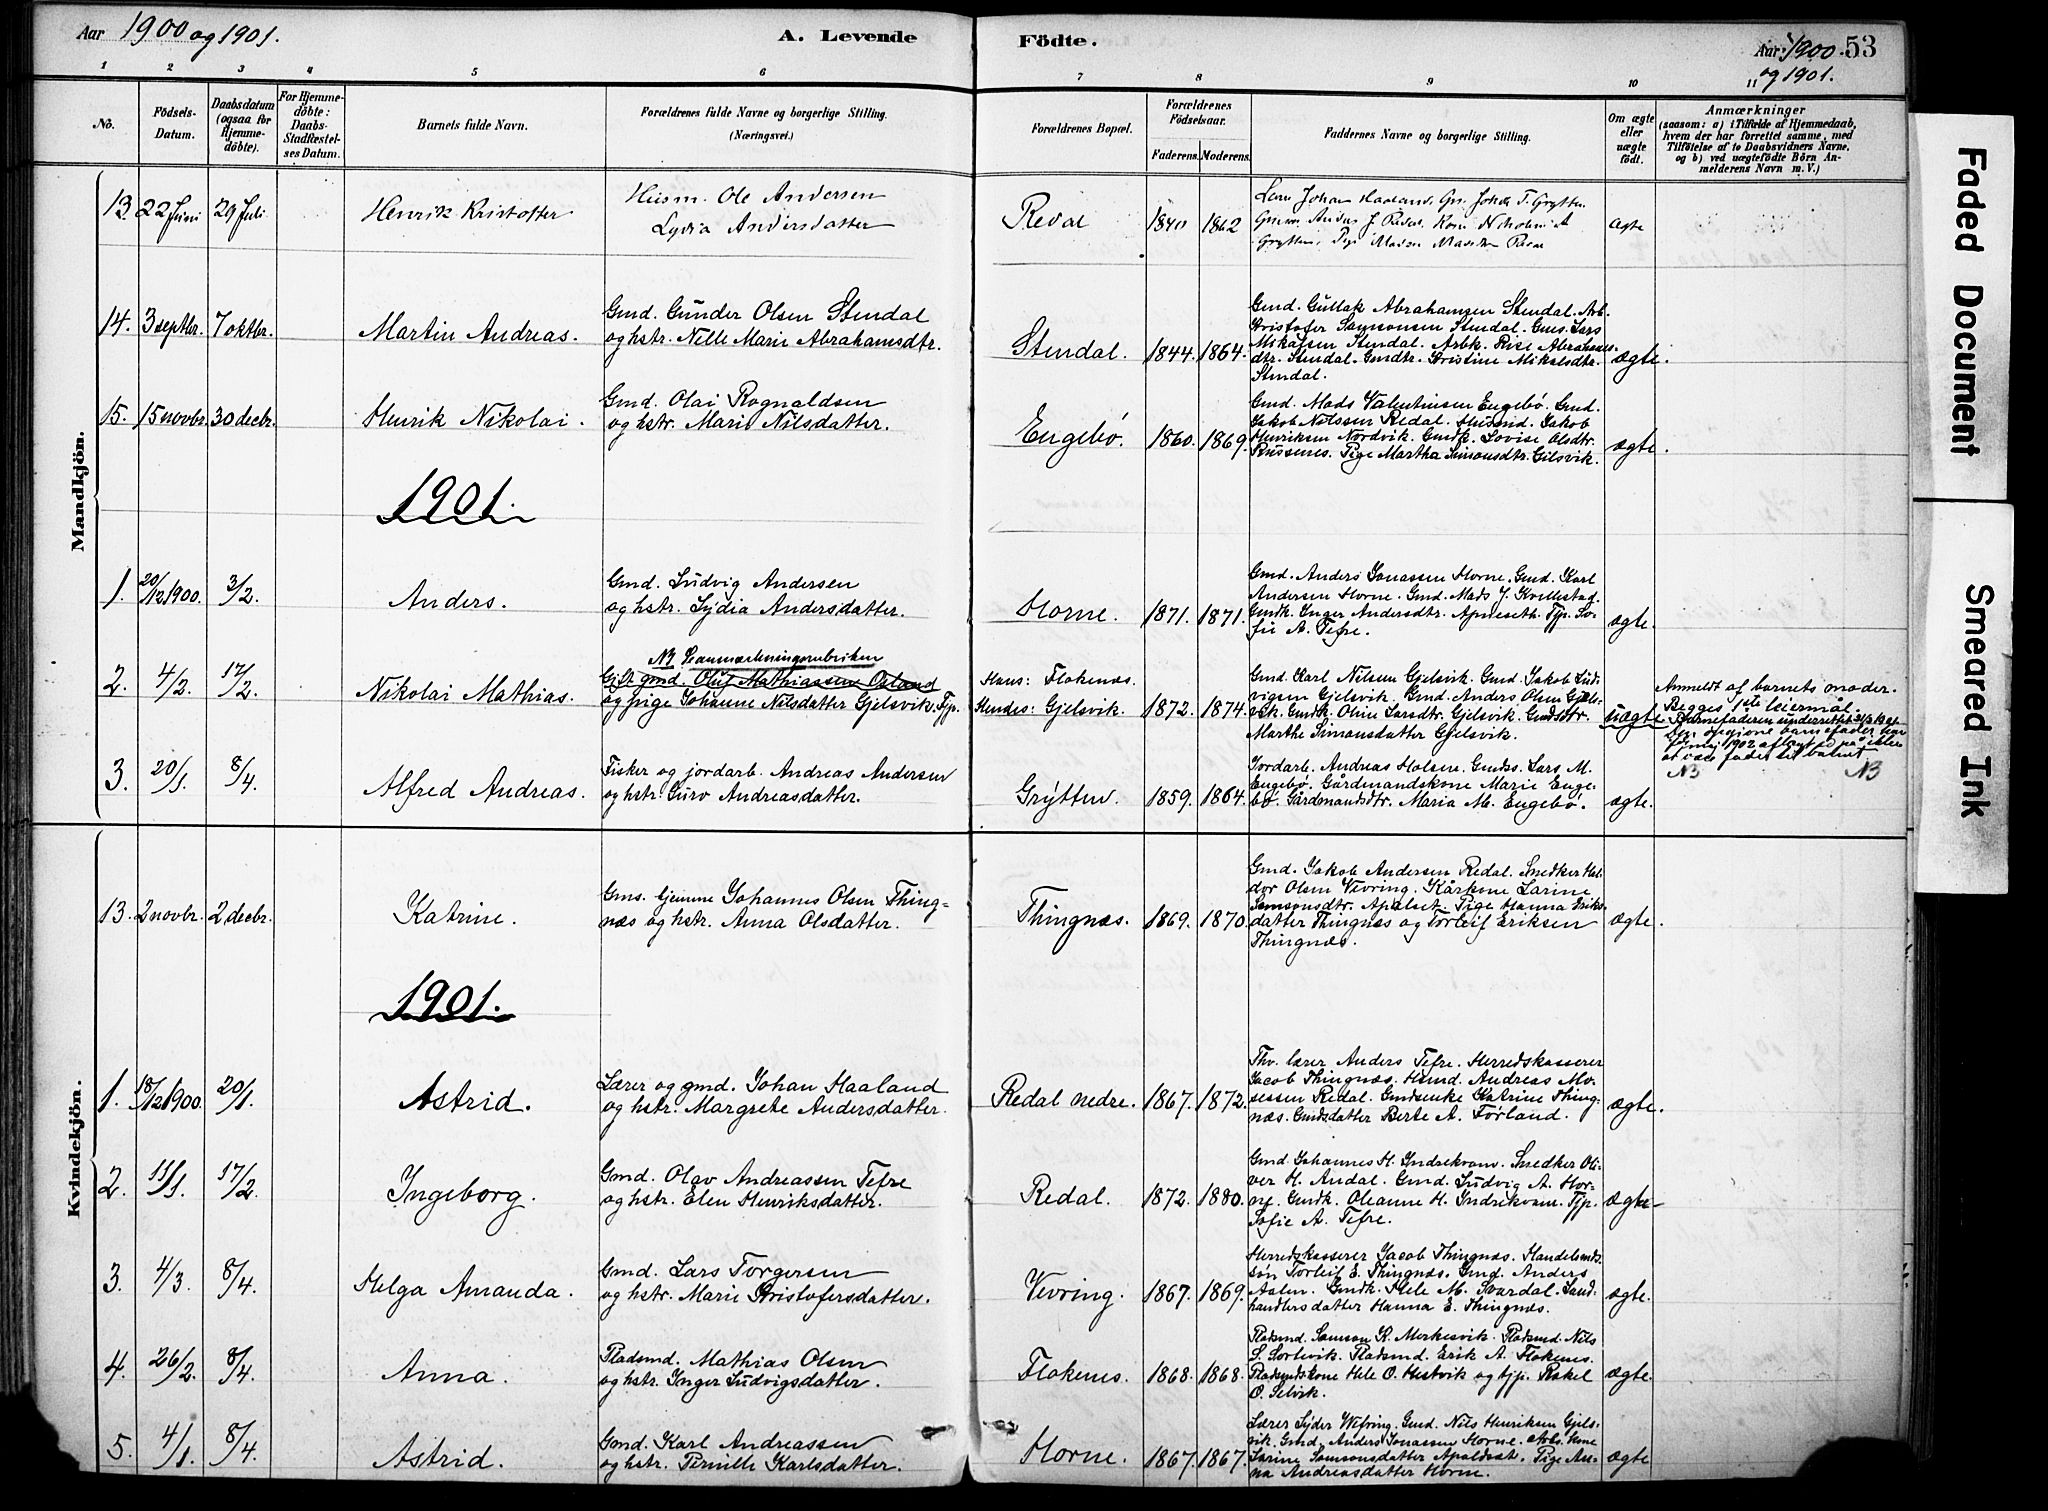 Aar 1900 og 1901.
A. Levende
Födte.
Aar 1900 53
og 1901.
1 2 3 4 5 6 7 8 9 10 11
No.
Födsels-
Datum.
Daabsdatum
(ogsaa for
Hjemme-
döbte).
For Hjemme-
döbte:
Daabs-
Stadfæstel-
ses Datum.
Barnets fulde Navn.
Forældrenes fulde Navne og borgerlige Stilling.
(Næringsvei.)
Forældrenes Bopæl.
Forældrenes
Födselsaar.
Faderens. Moderens.
Faddernes Navne og borgerlige Stilling.
Om ægte
eller
uægte
födt.
Anmærkninger
(saasom: a) i Tilfælde af Hjemmedaab,
hvem der har forrettet samme, med
Tilföielse af to Daabsvidners Navne,
og b) ved uægtefödte Börn An-
melderens Navn m. V.)
Mandkjön.
13. 22 Juni 29 Juli
Henrik Kristoffer
Husm. Ole Andersen
Lydia Andersdatter
Redal
1840 1862
Johan Haaland
ægte
14. 3 septbr. 7 oktbr.
Martin Andreas.
Gmd. Gunder Olsen Stendal
og hstr. Nille Marie Abrahamsdtr.
Stendal.
1844. 1864.
Gmd. Gullak Abrahamsen Stendal. Arb.
Kristofer Samsonsen Stendal. Gms. Lars
Mikalsen Stendal. Arbk. Rise Abrahams-
dtr. Stendal. Gmdtr. Kristine Mikalsdtr.
Stendal.
ægte.
15. 15 novbr. 30 decbr.
Henrik Nikolai.
Gmd. Olai Rognaldsen
og hstr. Marie Nilsdatter.
Engebö.
1860. 1869.
Gmd. Mads Valentinsen Engebö. Gmd.
Jakob Nilssen Redal. Husmd. Jakob
Henriksen Nordvik. Gmdk. Lovise Olsdtr.
Russenes. Pige Martha Simonsdtr. Gilsvik.
ægte.
1901.
1. 20/12 1900. 3/2.
Anders.
Gmd. Ludvig Andersen
og hstr. Lydia Andersdatter.
Horne.
1871. 1871.
Gmd. Anders Jonassen Horne. Gmd. Karl
Andersen Horne. Gmd. Mads J. Kvellestad.
Gmdk. Inger Andersdtr. Apneseth. Tjp. So-
fie A. Tefre.
ægte.
2. 4/2. 17/2.
Nikolai Mathias.
NB Se anmærkningsrubriken
Gift gmd. Oluf Mathiassen Osland
og pige Johanne Nilsdatter Gjelsvik. Tjp.
Hans: Flokenæs.
Hendes: Gjelsvik.
1872. 1874.
Gmd. Karl Nilsen Gjelsvik. Gmd. Jakob Lud-
vigsen Gjelsvik. Gmd. Anders Olsen Gjels-
vik. Gmdk. Oline Larsdtr. Gjelsvik. Gmdsdtr.
Marthe Simonsdatter Gjelsvik.
uægte.
Anmeldt af barnets moder.
Begges 1ste leiermål.
Barnefaderen underrettet
NB NB
3. 20/1. 8/4.
Alfred Andreas.
Fisker og jordarb. Andreas Andersen
og hstr. Guro Andreasdatter.
Grytten.
1859. 1864.
Jordarb. Andreas Holsen. Gmdss. Lars M.
Engebö. Gårdmandskone Marie Enge-
bö. Gårdmandsdtr. Maria M. Engebö.
ægte.
Kvindekjön.
13. 2 novbr. 2 decbr.
Katrine.
Gms. hjemme Johannes Olsen Thing-
næs og hstr. Anna Olsdatter.
Thingnæs.
1869. 1870.
Gmd. Jakob Andersen Redal. Snedker Hal-
dor Olsen Vevring. Kårkone Larine
Samsonsdtr. Apalset. Pige Hanna Eriks-
datter Thingnæs og Torleif Eriksen
Thingnæs.
ægte.
1901.
1. 18/12 1900. 20/1.
Astrid.
Lærer og gmd. Johan Haaland
og hstr. Margrete Andersdatter.
Redal nedre.
1867. 1872.
Fhv. lærer Anders Tefre. Herredskasserer
Jacob Thingnæs. Husmd. Andreas Mo-
sessen Redal. Gmdsenke Katrine Thing-
næs. Gmdsdatter Berte A. Förland.
ægte.
2. 11/1. 17/2.
Ingeborg.
Gmd. Olav Andreassen Tefre
og hstr. Elen Henriksdatter.
Redal.
1872. 1880.
Gmd. Johannes H. Indrekvam. Snedker Oli-
ver H. Andal. Gmd. Ludvig A. Hor-
ne. Gmdk. Oleanne H. Indrekvam. Tjp.
Sofie A. Tefre.
ægte.
3. 4/3. 8/4.
Helga Amanda.
Gmd. Lars Torgersen
og hstr. Marie Kristofersdatter.
Vevring.
1867. 1869.
Herredskasserer Jacob Thingnæs. Handelsmds-
søn Torleif E. Thingnæs. Gmd. Anders
Aalen. Gmdk. Hele M. Svardal. Land-
handlersdatter Hanna E. Thingnæs.
ægte.
4. 26/2. 8/4.
Anna.
Pladsmd. Mathias Olsen
og hstr. Inger Ludvigsdatter.
Flokenes.
1868. 1868.
Pladsmd. Samson K. Merkesvik. Pladsmd. Nils
S. Sortevik. Pladsmd. Erik A. Flokenes.
Pladsmdskone Hele O. Hestvik og tjp. Rakel
O. Selvik.
ægte.
5. 4/1. 8/4.
Astrid.
Gmd. Karl Andreassen
og hstr. Pernille Karlsdatter.
Horne.
1867. 1867.
Lærer Lyder Wefring. Gmd. Nils Henriksen Gjels-
vik. Gmd. Anders Jonassen Horne. Arbs. kone
Larine Samsonsdatter Apaldset. Pige An-
na Andreasdatter Horne.
ægte.
Faded Document
Smeared Ink